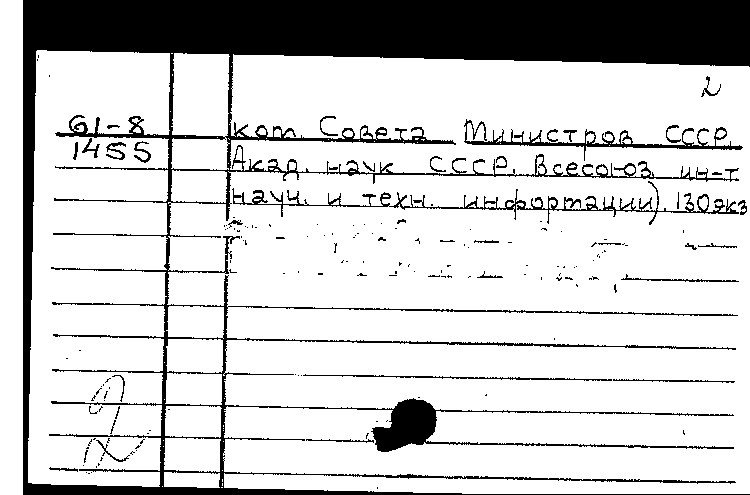 2
61-8
1455
ком. Совета Министров СССР.
Акад. наук СССР. Всесоюз. ин-т
науч. и техн. информации). 130экз
2